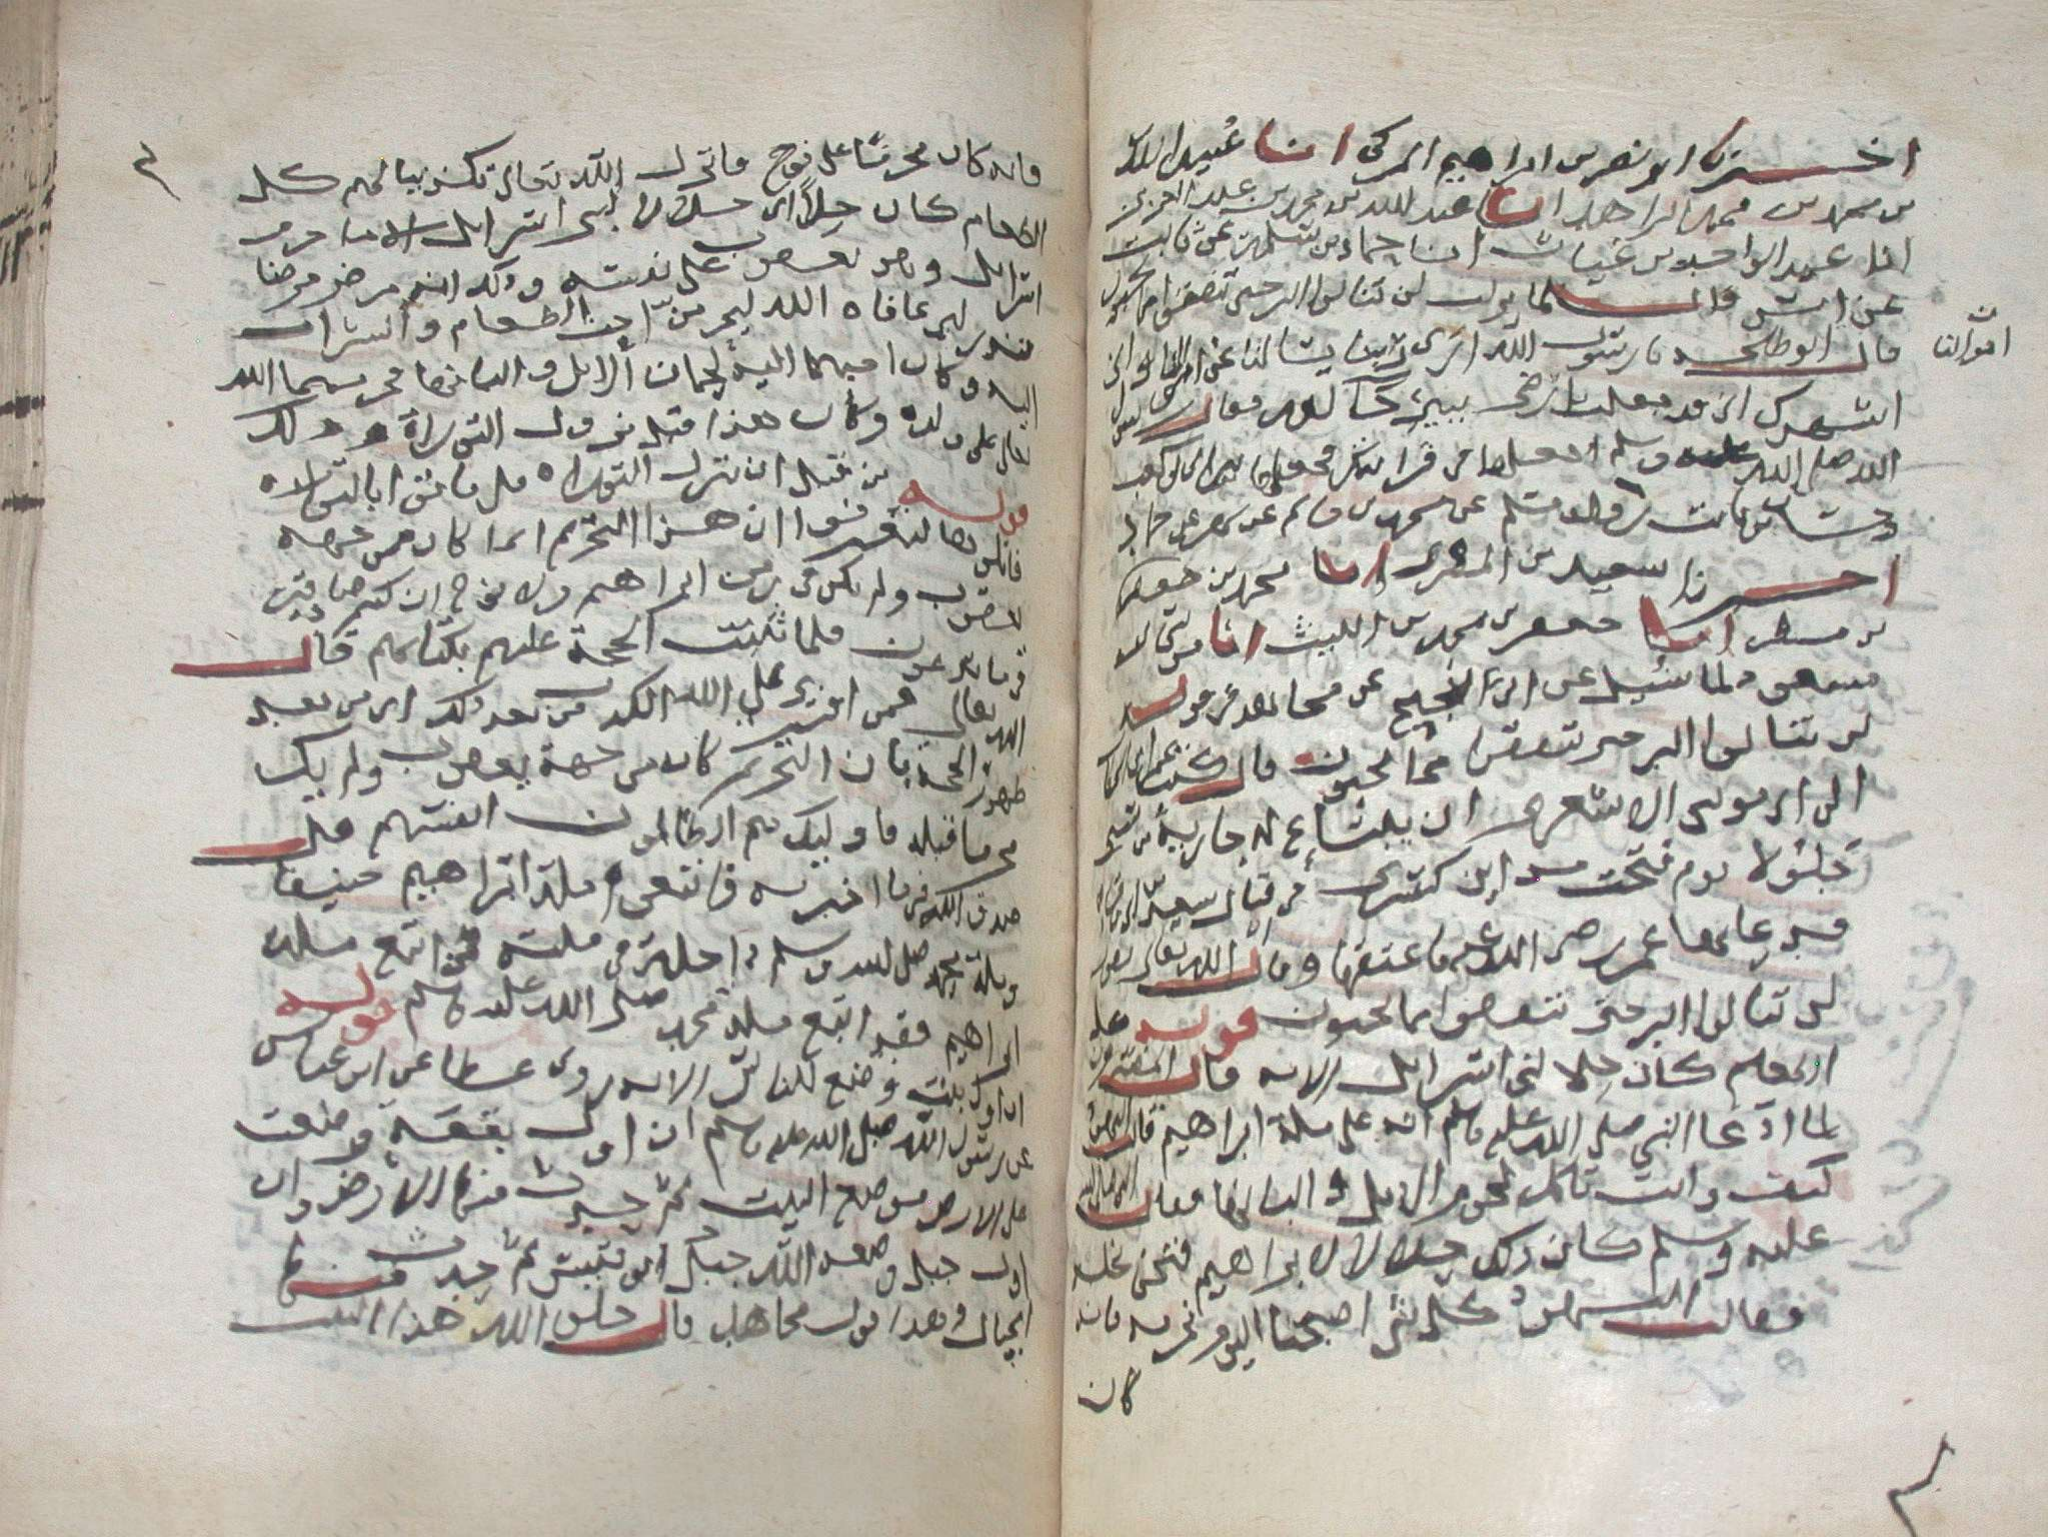 اخبرنا ابو نصر بن ابراهيم المزكي انا عبيد الله
بن محمد بن محمد الزاهد انا عبد الله بن محمد بن عبد العزيز
انا عبد الواحد بن غياث انا حماد بن سلمة عن ثابت
عن انس قال لما نزلت لن تنالوا البر حتى تنفقوا مما تحبون
قال ابو طلحة يا رسول الله ارى ربنا يسالنا من اموالنا واني
اموالنا
اشهدك اني قد جعلت ارضي بيرحا لله فقال رسول
الله صلى الله عليه وسلم اجعلها في قرابتك فجعلها في ابي بن كعب
وحسان بن ثابت رواه مسلم عن محمد بن حاتم عن بهز عن حماد
اخبرنا سعيد بن انا محمد بن جعفر
بن مطر انا جعفر بن محمد بن الليث انا
مسعود عن ابن ابي نجيح عن مجاهد في قوله
لن تنالوا البر حتى تنفقوا مما تحبون قال كتب عمر
الى ابي موسى الاشعري ان يبتاع له جارية من سبي
جلولا يوم فتحت مداين كسرى في قتال سعد
عمر رضي الله عنه فاعتقها وقال ان الله تعالى يقول
لن تنالوا البر حتى تنفقوا مما تحبون قوله كل
الطعام كان حلا لبني اسرايل الاية قال المفسرون
لما ادعا النبي صلى الله عليه وسلم انه على ملة ابراهيم قالت اليهود
كيف وانت تاكل لحوم الابل و البانها فقال النبي صلى الله
عليه وسلم كان ذلك حلالا لابراهيم فنحن نحله
وقالت اليهود كل شي اصبحنا اليوم نحرمه فانه
كان
فانه كان محرما على نوح فانزل الله تعالى تكذيبا لهم كل
الطعام كان حلا اي حلالا لبني اسرايل الا ما حرم
اسرايل وهو يعقوب على نفسه وذلك انه مرض مرضا
فنذر لين عافاه الله ليحرمن احب الطعام والشراب
اليه وكان احبهما اليه لحمان الابل والبانها فحرمهما الله
تعالى على ولده وكان هذا قبل نزول التوراة وذلك
قوله من قبل ان تنزل التوراة قل فاتوا بالتوراة
فاتلوها لتعرفوا ان هذا التحريم انما كان من جهة
يعقوب ولم يكن في زمن ابراهيم ولا نوح ان كنتم صادقين
فيما تدعون فلما ثبتت الحجة عليهم بكتابهم قال
الله تعالى فمن افترى على الله الكذب من بعد ذلك اي من بعد
ظهور الحجة بان التحريم كان من جهة يعقوب ولم يكن
محرما قبله فاوليك هم الظالمون انفسهم قل
صدق الله فيما اخبر به فاتبعوا ملة ابراهيم حنيفا
وملة محمد صلى الله عليه وسلم داخلة في ملته فمن اتبع ملة
ابراهيم فقد اتبع ملة محمد صلى الله عليه وسلم قوله
ان اول بيت وضع للناس الاية روى عطا عن ابن عباس
عن رسول الله صلى الله عليه وسلم ان اول بقعة وضعت
على الارض موضع البيت ثم مدت منها الارض وان
اول جبل وضعه الله جبل ابو قبيس ثم مدت منها
الجبال وهذا قول مجاهد قال خلق الله هذا البيت